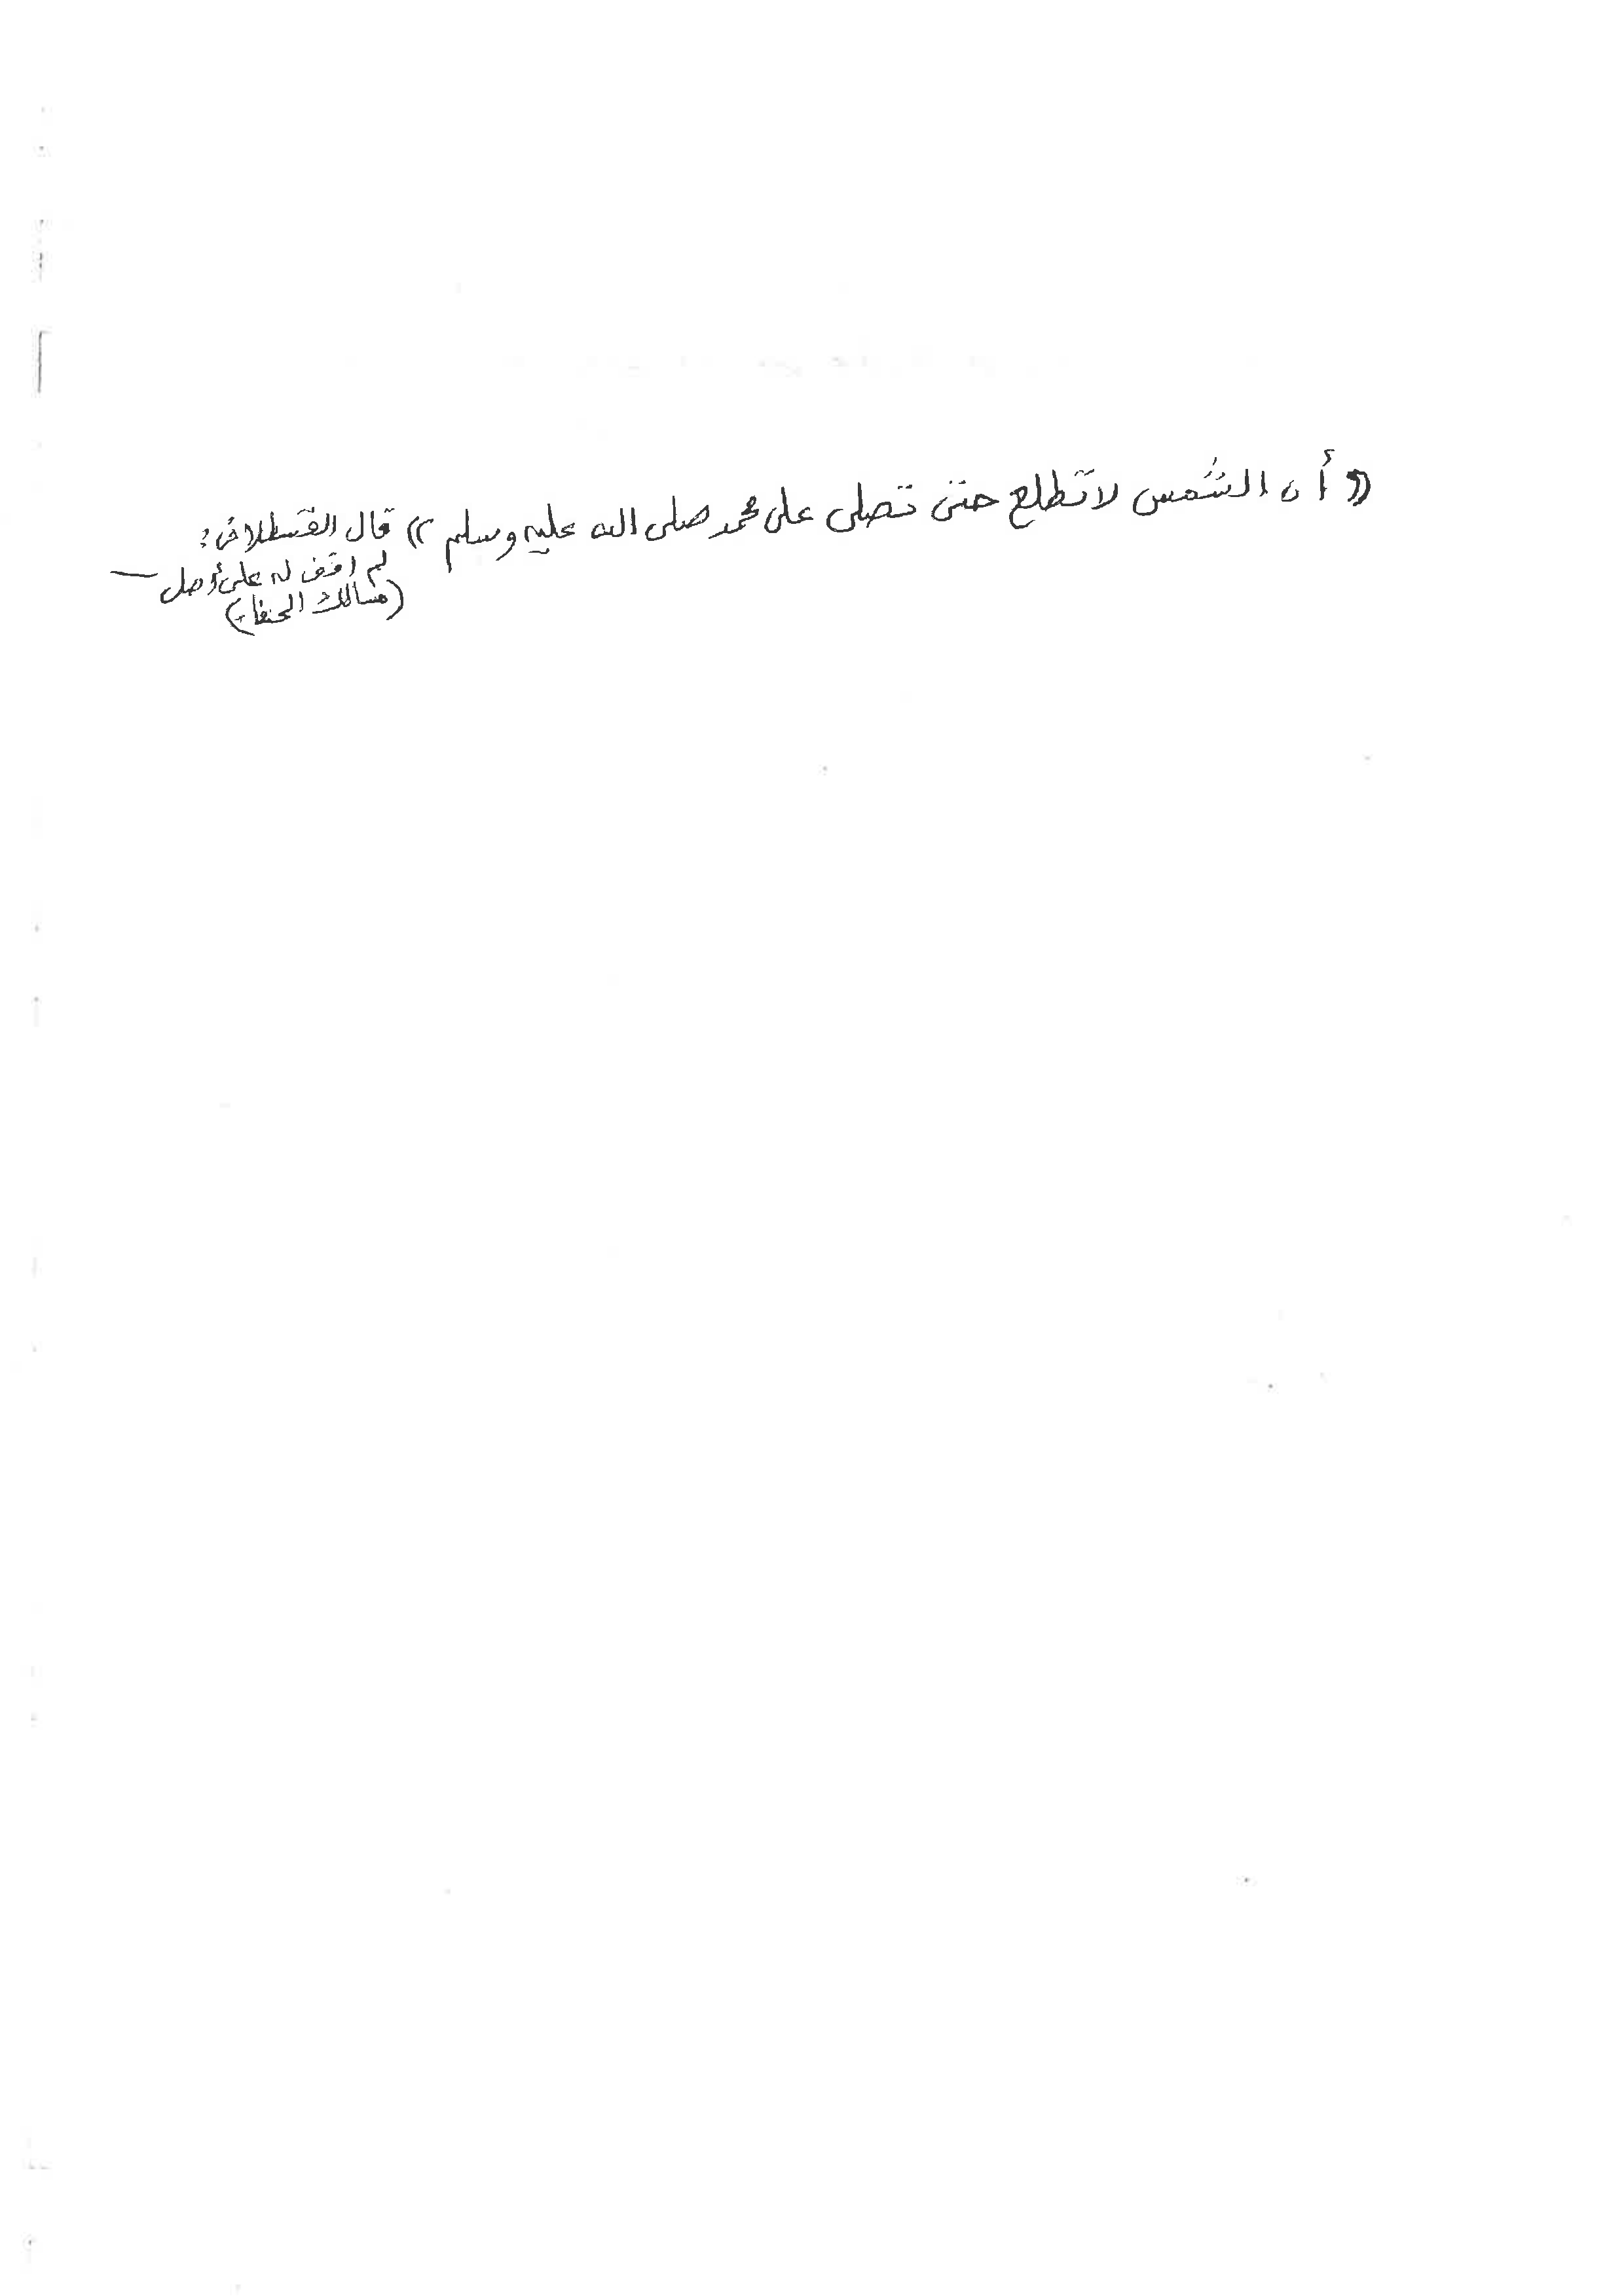 «أن الشمس لا تطلع حتى تصلى على محمد صلى الله عليه وسلم» قال القسطلانى:
لم اقف له على أصل —
(مسالك الحنفاء)